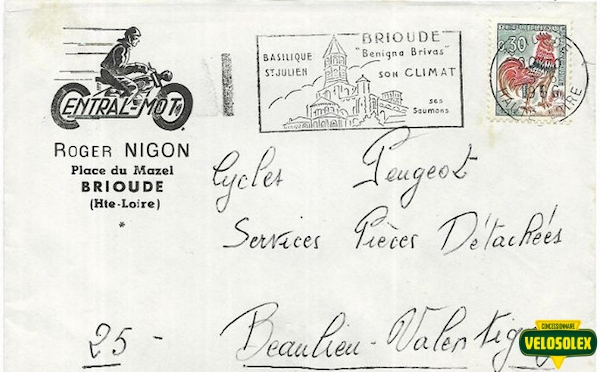 CENTRAL-MOT.
ROGER NIGON
Place du Mazel
BRIOUDE
(Hte-Loire)
*
BASILIQUE
ST JULIEN
BRIOUDE
"Benigna Brivas"
SON CLIMAT
ses
Saumons
0,30
Cycles Peugeot
Services Pièces Détachées
25 - Beaulieu-Valentigney
CONCESSIONNAIRE
VELOSOLEX